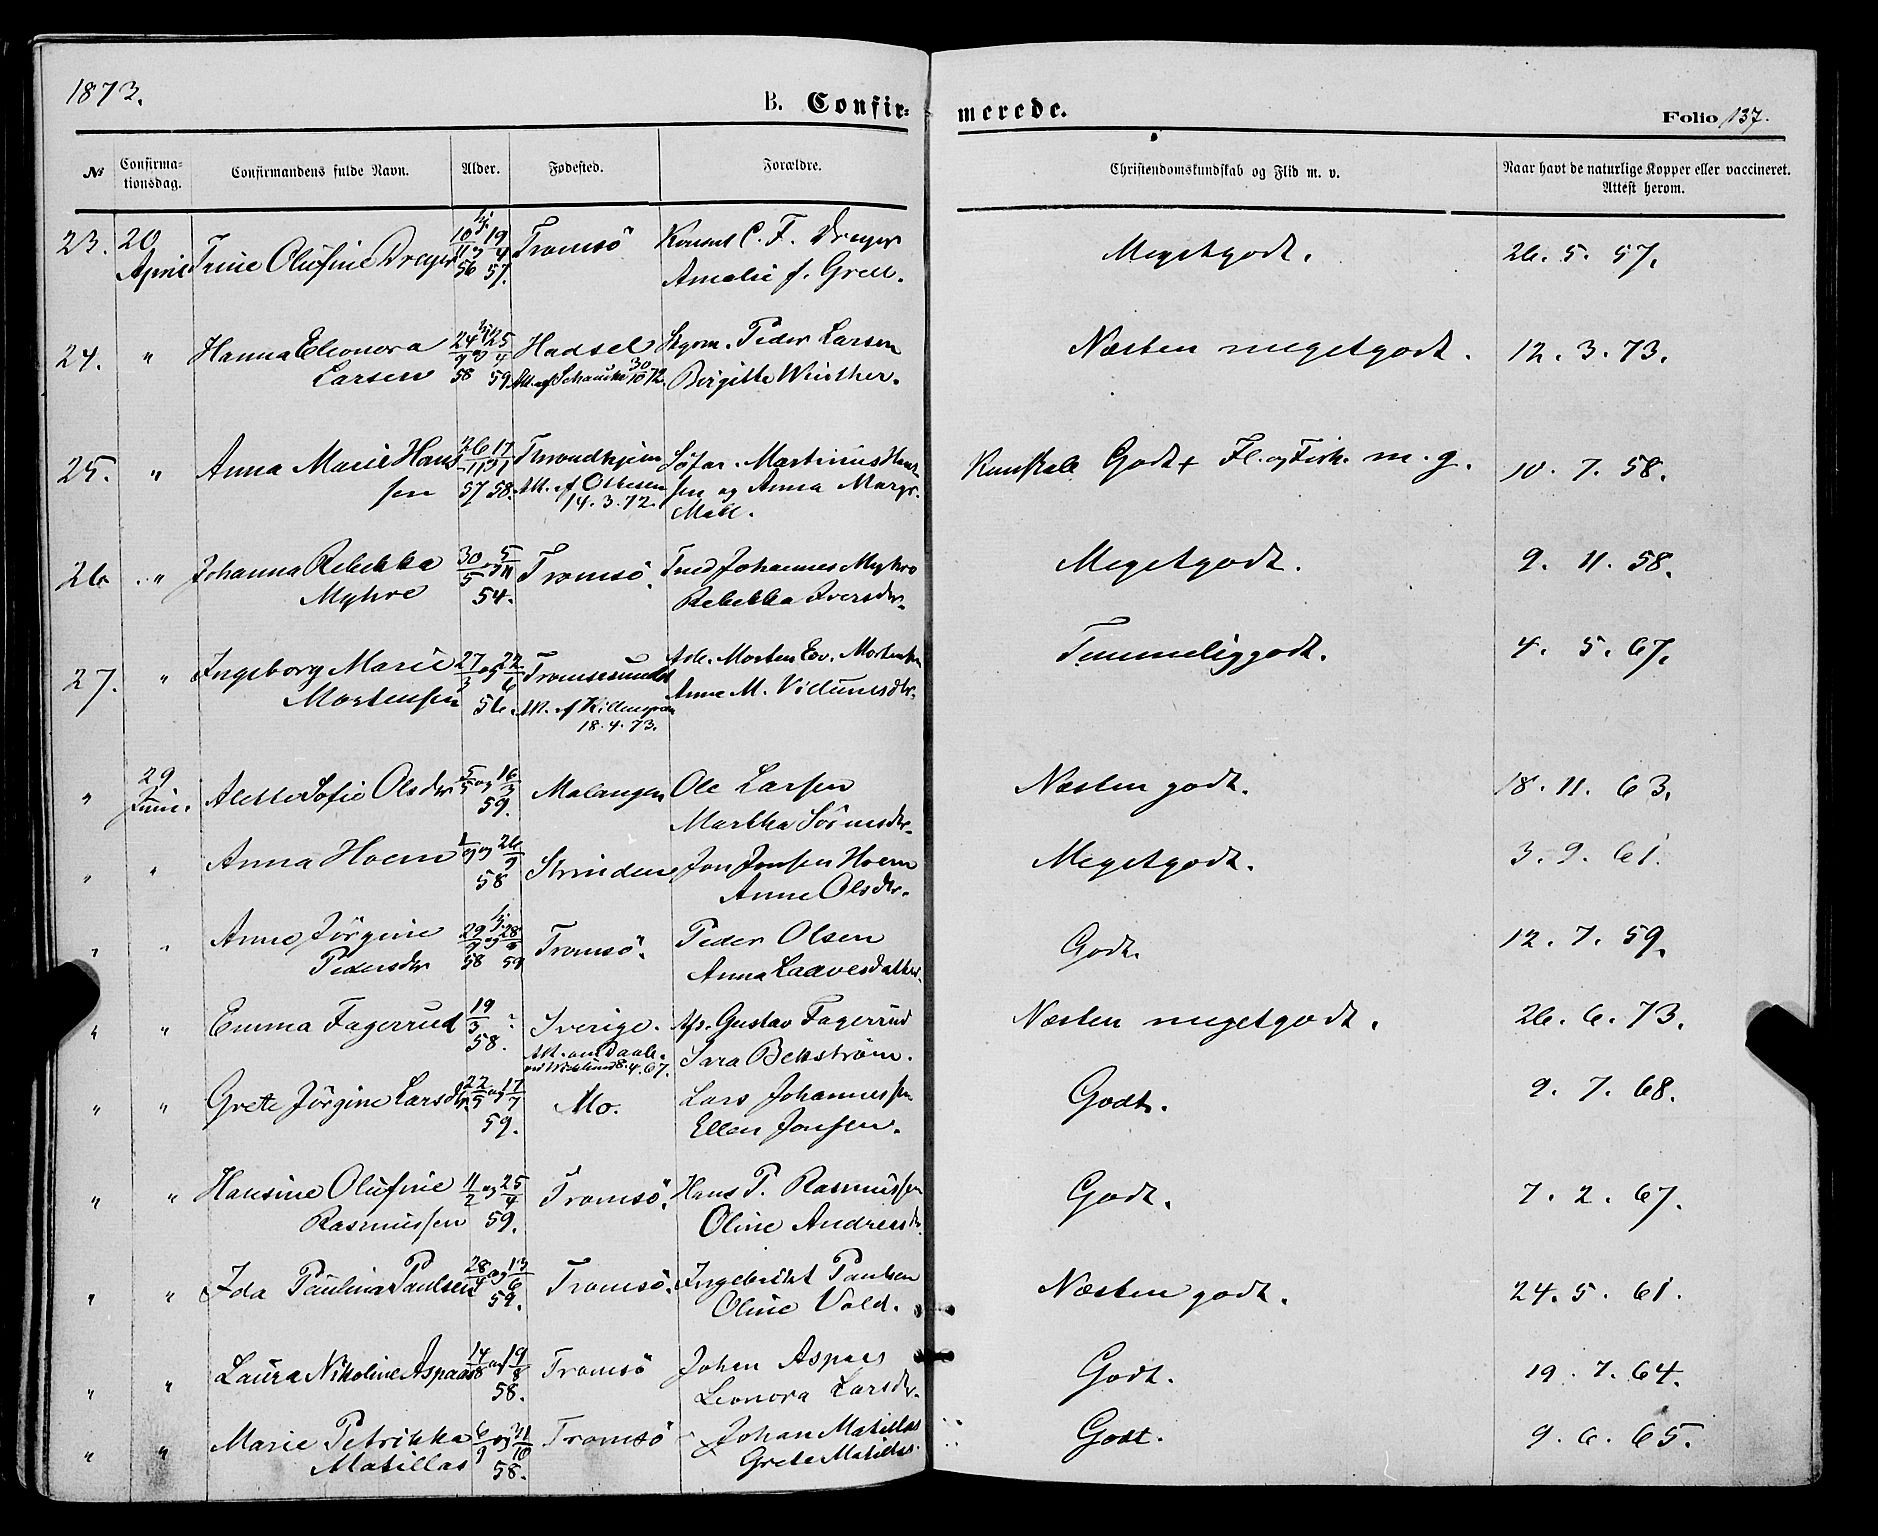 1873.
B. Confir=
merede.
Folio 137.
No
Confirma-
tionsdag.
Confirmandens fulde Navn.
Alder.
Fødested.
Forældre.
Christendomskundskab og Flid m. v.
Naar havt de naturlige Kopper eller vaccineret.
Attest herom.
23. 20 April Trine Olufine Dreyer 10/11 56 19/4 57. Tromsö Konsul C. F. Dreyer
Amalie f. Grell.
Megetgodt. 26. 5. 57.
24. " Hanna Eleonora
Larsen 24/9 58 25/4 59 Hadsel 30/10 72. Peder Larsen
Birgitte Winther.
Næsten megetgodt. 12. 3. 73.
25. " Anna Marie Han
sen 26/11 57 17/1 58. Throndhjem
14. 3. 72. Söfar. Martinius Han
sen og Anna Margr.
Moll.
Kunskab Godt + Fl. og Fisk. m. g. 10. 7. 58.
26 " Johanna Rebekka
Myhre 30/5 og 5/11 54. Tromsö. Johannes Myhre
Rebekka Iversdr.
Megetgodt. 9. 11. 58.
27. " Ingeborg Marie
Mortensen 27/3 og 22/6 56. Tromsesundet
18. 4. 73. Arb. Morten Ev. Mortensen
Anne M.
Temmeliggodt. 4. 5. 67.
" 29 Juni. Alette Sofie Olsdr 5/5 og 16/3 59. Malangen Ole Larsen
Martha
Næsten godt. 18. 11. 63.
" " Anna Hoem 1/9 og 26/9 58 Strinden Jon Jonsen Hoem
Anne Olsdtr.
Megetgodt. 3. 9. 61.
" " Anne Jörgine
Pedersdr 29/9 58 Tromsö. Peder Olsen
Anna
Godt. 12. 7. 59.
" " Emma Fagerrud 19/3 58. Sverige.
8. 4. 67. Gustav Fagerrud
Sara Bekström.
Næsten megetgodt. 26. 6. 73.
" " Grete Jörgine Larsdtr. 22/5 og 17/7 59. Mo. Lars Johannessen
Ellen Jonsen.
Godt. 9. 7. 68.
" " Hansine Olufine
Rasmussen 11/2 og 25/4 59. Tromsö. Hans P. Rasmussen
Oline Andreasd.
Godt. 7. 2. 67.
" " Ida Paulina Paulsen 28/4 og 13/6 59. Tromsö. Ingebrikt Paulsen
Oline Vold.
Næsten godt. 24. 5. 61.
" " Laura Nikoline Aspaas 14/8 og 19/8 58. Tromsö Johan Aspaas
Leonora Larsdr.
Godt. 19. 7. 64.
" " Marie Petrikka
Matillas 6/9 og 31/10 58. Tromsö Johan Matillas
Grete Matillas.
Godt. 9. 6. 65.